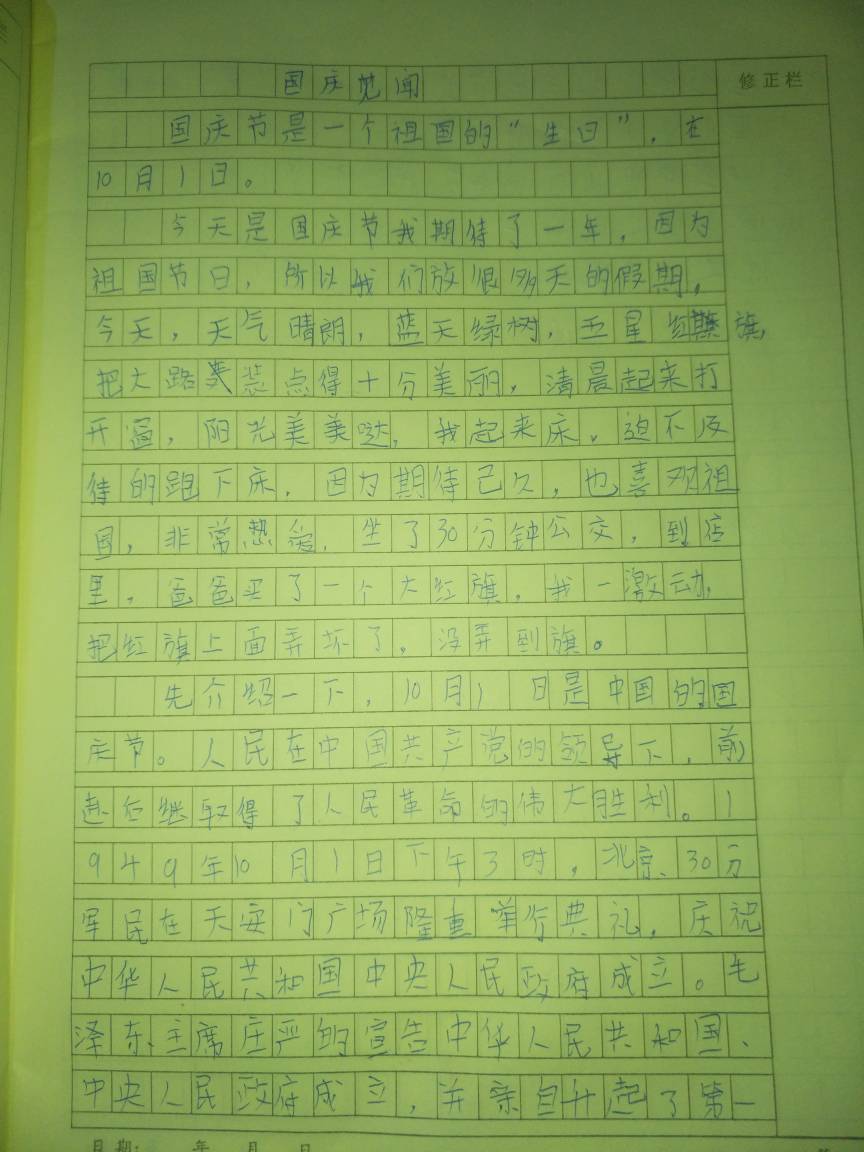 国庆见闻
修正栏
国庆节是一个祖国的“生日”，在
10月1日。
今天是国庆节我期待了一年，因为
祖国节日，所以我们放很多天的假期，
今天，天气晴朗，蓝天绿树，五星红旗
把大路装点得十分美丽，清晨起来打
开窗，阳光美美哒，我起来床，迫不及
待的跑下床，因为期待己久，也喜欢祖
国，非常热爱，坐了30分钟公交，到店
里，爸爸买了一个大红旗，我一激动，
把红旗上面弄坏了，没弄到旗。
先介绍一下，10月1日是中国的国
庆节。人民在中国共产党的领导下，前
赴后继取得了人民革命的伟大胜利。1
949年10月1日下午3时，北京、30万
军民在天安门广场隆重举行典礼，庆祝
中华人民共和国中央人民政府成立。毛
泽东、主席庄严的宣告中华人民共和国、
中央人民政府成立，并亲自升起了第一
日期： 年 月 日